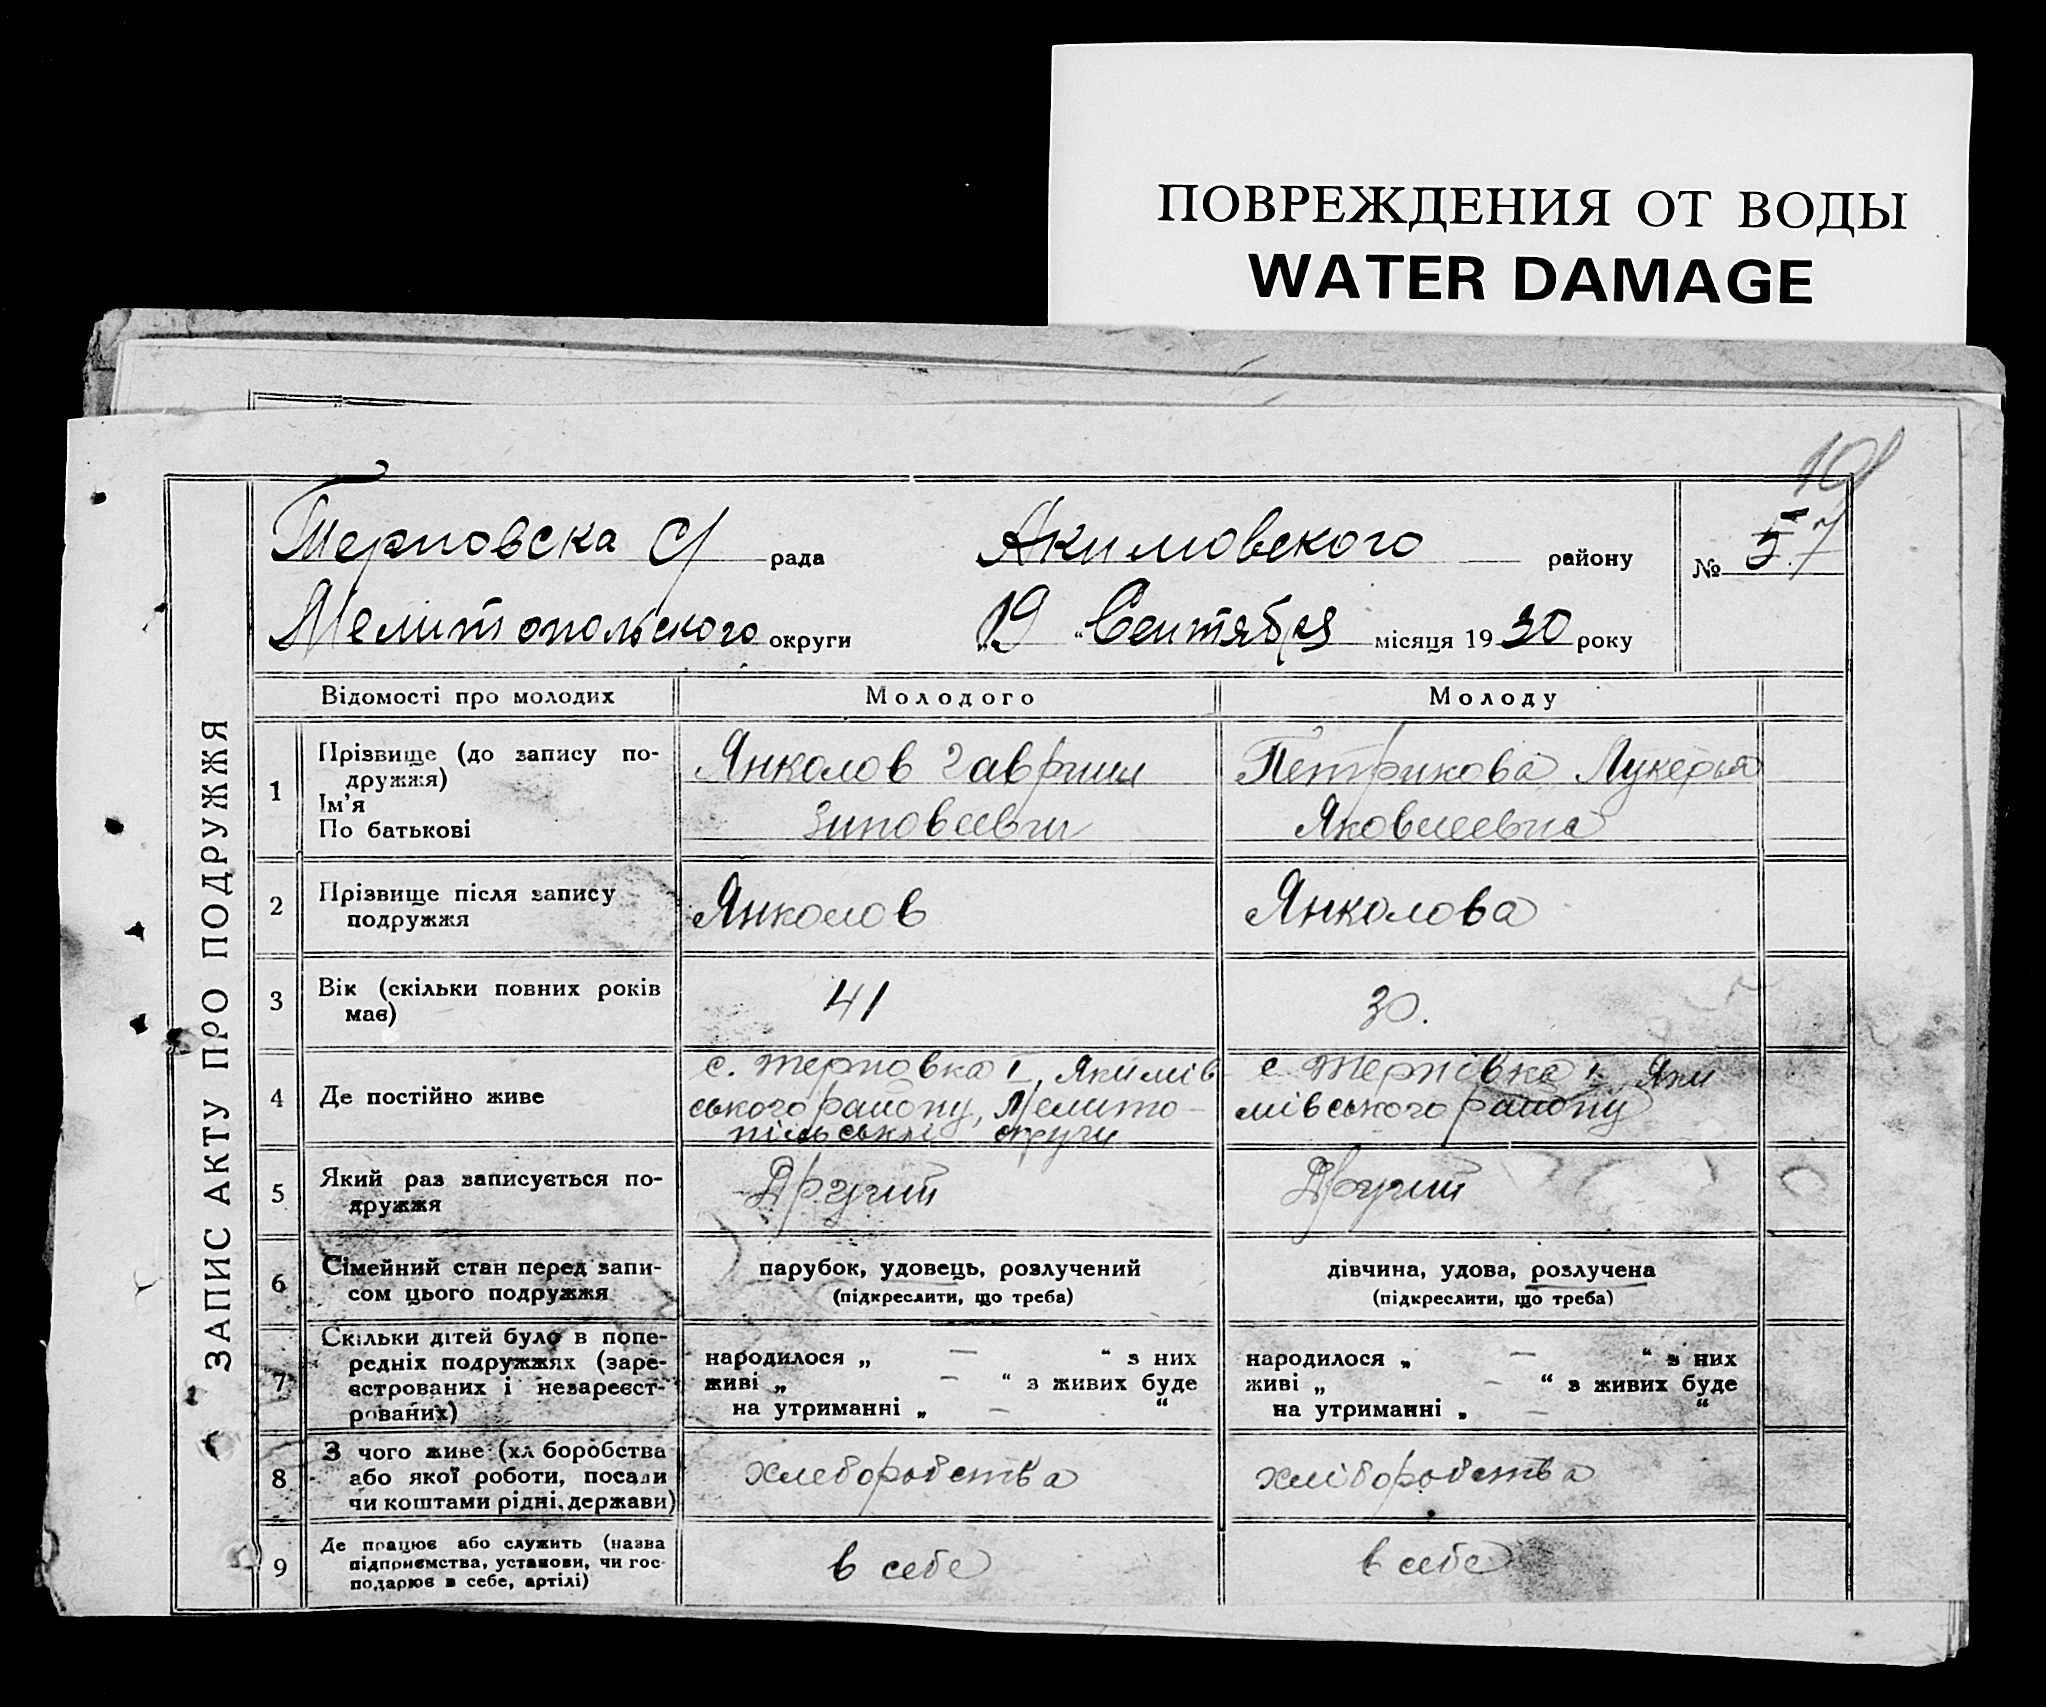 ПОВРЕЖДЕНИЯ ОТ ВОДЫ
WATER DAMAGE
101
Терновска с/ рада Акимовского району № 57
Мелитопольского округи „19“ Сентября місяця 1930 року
ЗАПИС АКТУ ПРО ПОДРУЖЖЯ
Відомості про молодих Молодого Молоду
1 Прізвище (до запису по-
дружжя)
Ім'я
По батькові
Янколов Гавриил
Зиновеевич
Петрикова Лукерья
Яковлеевна
2 Прізвище після запису
подружжя
Янколов
Янколова
3 Вік (скільки повних років
має)
41
30.
4 Де постійно живе
с. Терновка I, Якимів
ського району, Мелито-
пільської округи
с Тернівка I, Яки
мівського району
5 Який раз записується по-
дружжя
Другий
Другий
6 Сімейний стан перед запи-
сом цього подружжя
парубок, удовець, розлучений
(підкреслити, що треба)
дівчина, удова, розлучена
(підкреслити, що треба)
7 Скільки дітей було в попе-
редніх подружжях (заре-
єстрованих і незареєст-
рованих)
народилося „ — “ з них
живі „ — “ з живих буде
на утриманні „ — “
народилося „ — “ з них
живі „ — “ з живих буде
на утриманні „ — “
8 З чого живе (хліборобства
або якої роботи, посади
чи коштами рідні, держави)
хлеборобства
хліборобства
9 Де працює або служить (назва
підприємства, установи, чи гос-
подарює в себе, артілі)
в себе
в себе